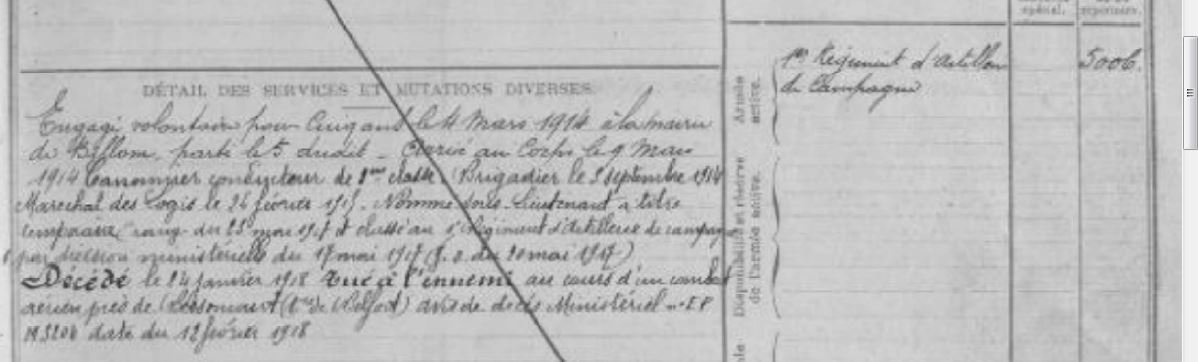 spécial.
répertoire.
1er Régiment d'Artillerie
de Campagne
5006.
Armée
active.
Disponibilité et réserve
de l'armée active.
DÉTAIL DES SERVICES ET MUTATIONS DIVERSES.
Engagé volontaire pour cinq ans le 4 Mars 1914 à la mairie
de Billom, parti le 5 dudit - Arrivé au Corps le 9 Mars
1914 Canonnier conducteur de 2me classe. Brigadier le 5 septembre 1914
Maréchal des Logis le 26 février 1915. Nommé sous-lieutenant à titre
temporaire (rang du 25 mai 1917 et classé au 1er Régiment d'Artillerie de campagne
par décision ministérielle du 17 mai 1917 (J. O. du 20 mai 1917)
Décédé le 24 janvier 1918 Tué à l'ennemi au cours d'un combat
aérien près de (Tre de Belfort) avis de décès Ministériel n° E P
date du 12 février 1918